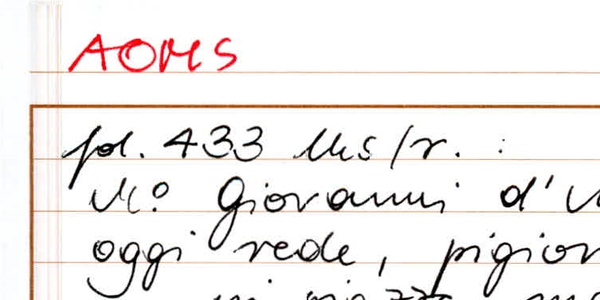 AOMS
fol. 433 Ms/r. :
M.o Giovanni d'
oggi rede, pigion
in piazza